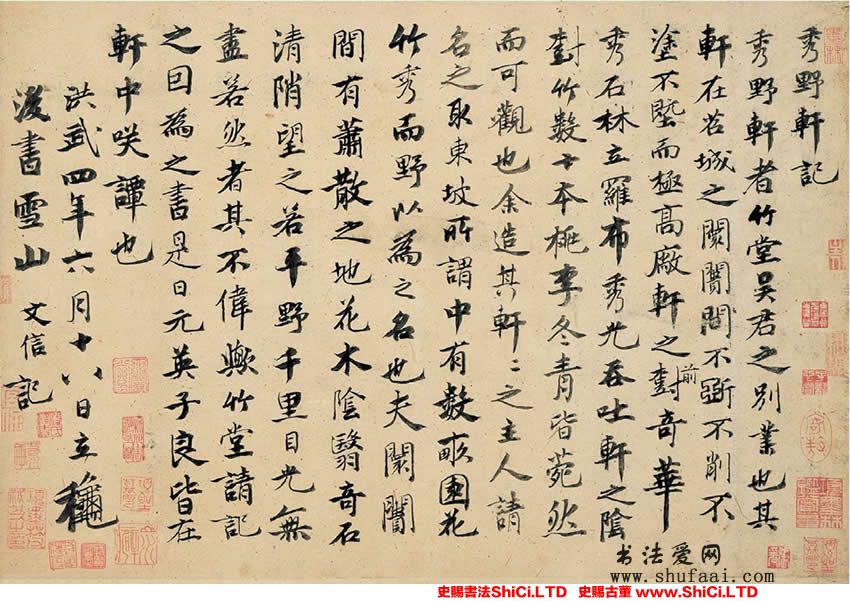 秀野軒記
秀野軒者竹堂吴君之别業也其
軒在苕城之闤闠間不斵不削不
塗不墍而極高廠軒之前對奇華
秀石林立羅布秀光吞吐軒之陰
對竹數十本桃李冬青皆菀然
而可觀也余造其軒〻之主人請
名之取東坡所謂中有數畝園花
竹秀而野以為之名也夫闤闠
間有蕭散之地花木陰翳奇石
清陗望之若平野千里目光無
盡若然者其不偉歟竹堂請記
之回為之書是日元英子良皆在
軒中咲譚也
洪武四年六月十八日立穐
後書雪山文信記
书法爱网
www.shufaai.com
史賜書法ShiCi.LTD 史賜古董 www.ShiCi.LTD